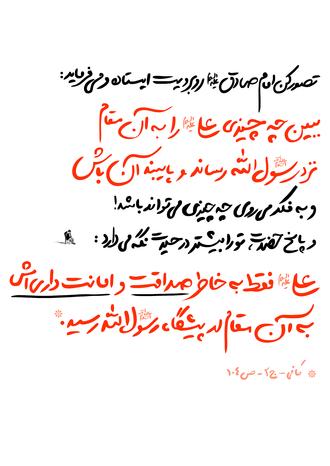 تصور کن امام صادق ﷷ روبرویت ایستاده و می فرماید:
ببین چه چیزی علی را به آن مقام
نزد رسول الله ﷺ رساند و پایبند آن باش
و به فکر می روی چه چیزی می تواند باشد!
و پاسخ حضرت، تو را بیشتر در حیرت نگه می دارد:
علی فقط به خاطر صداقت و امانت داری اش
به آن مقام در پیشگاه رسول الله ﷺ رسید.*
* کافی - ج۲ - ص۱۰۴